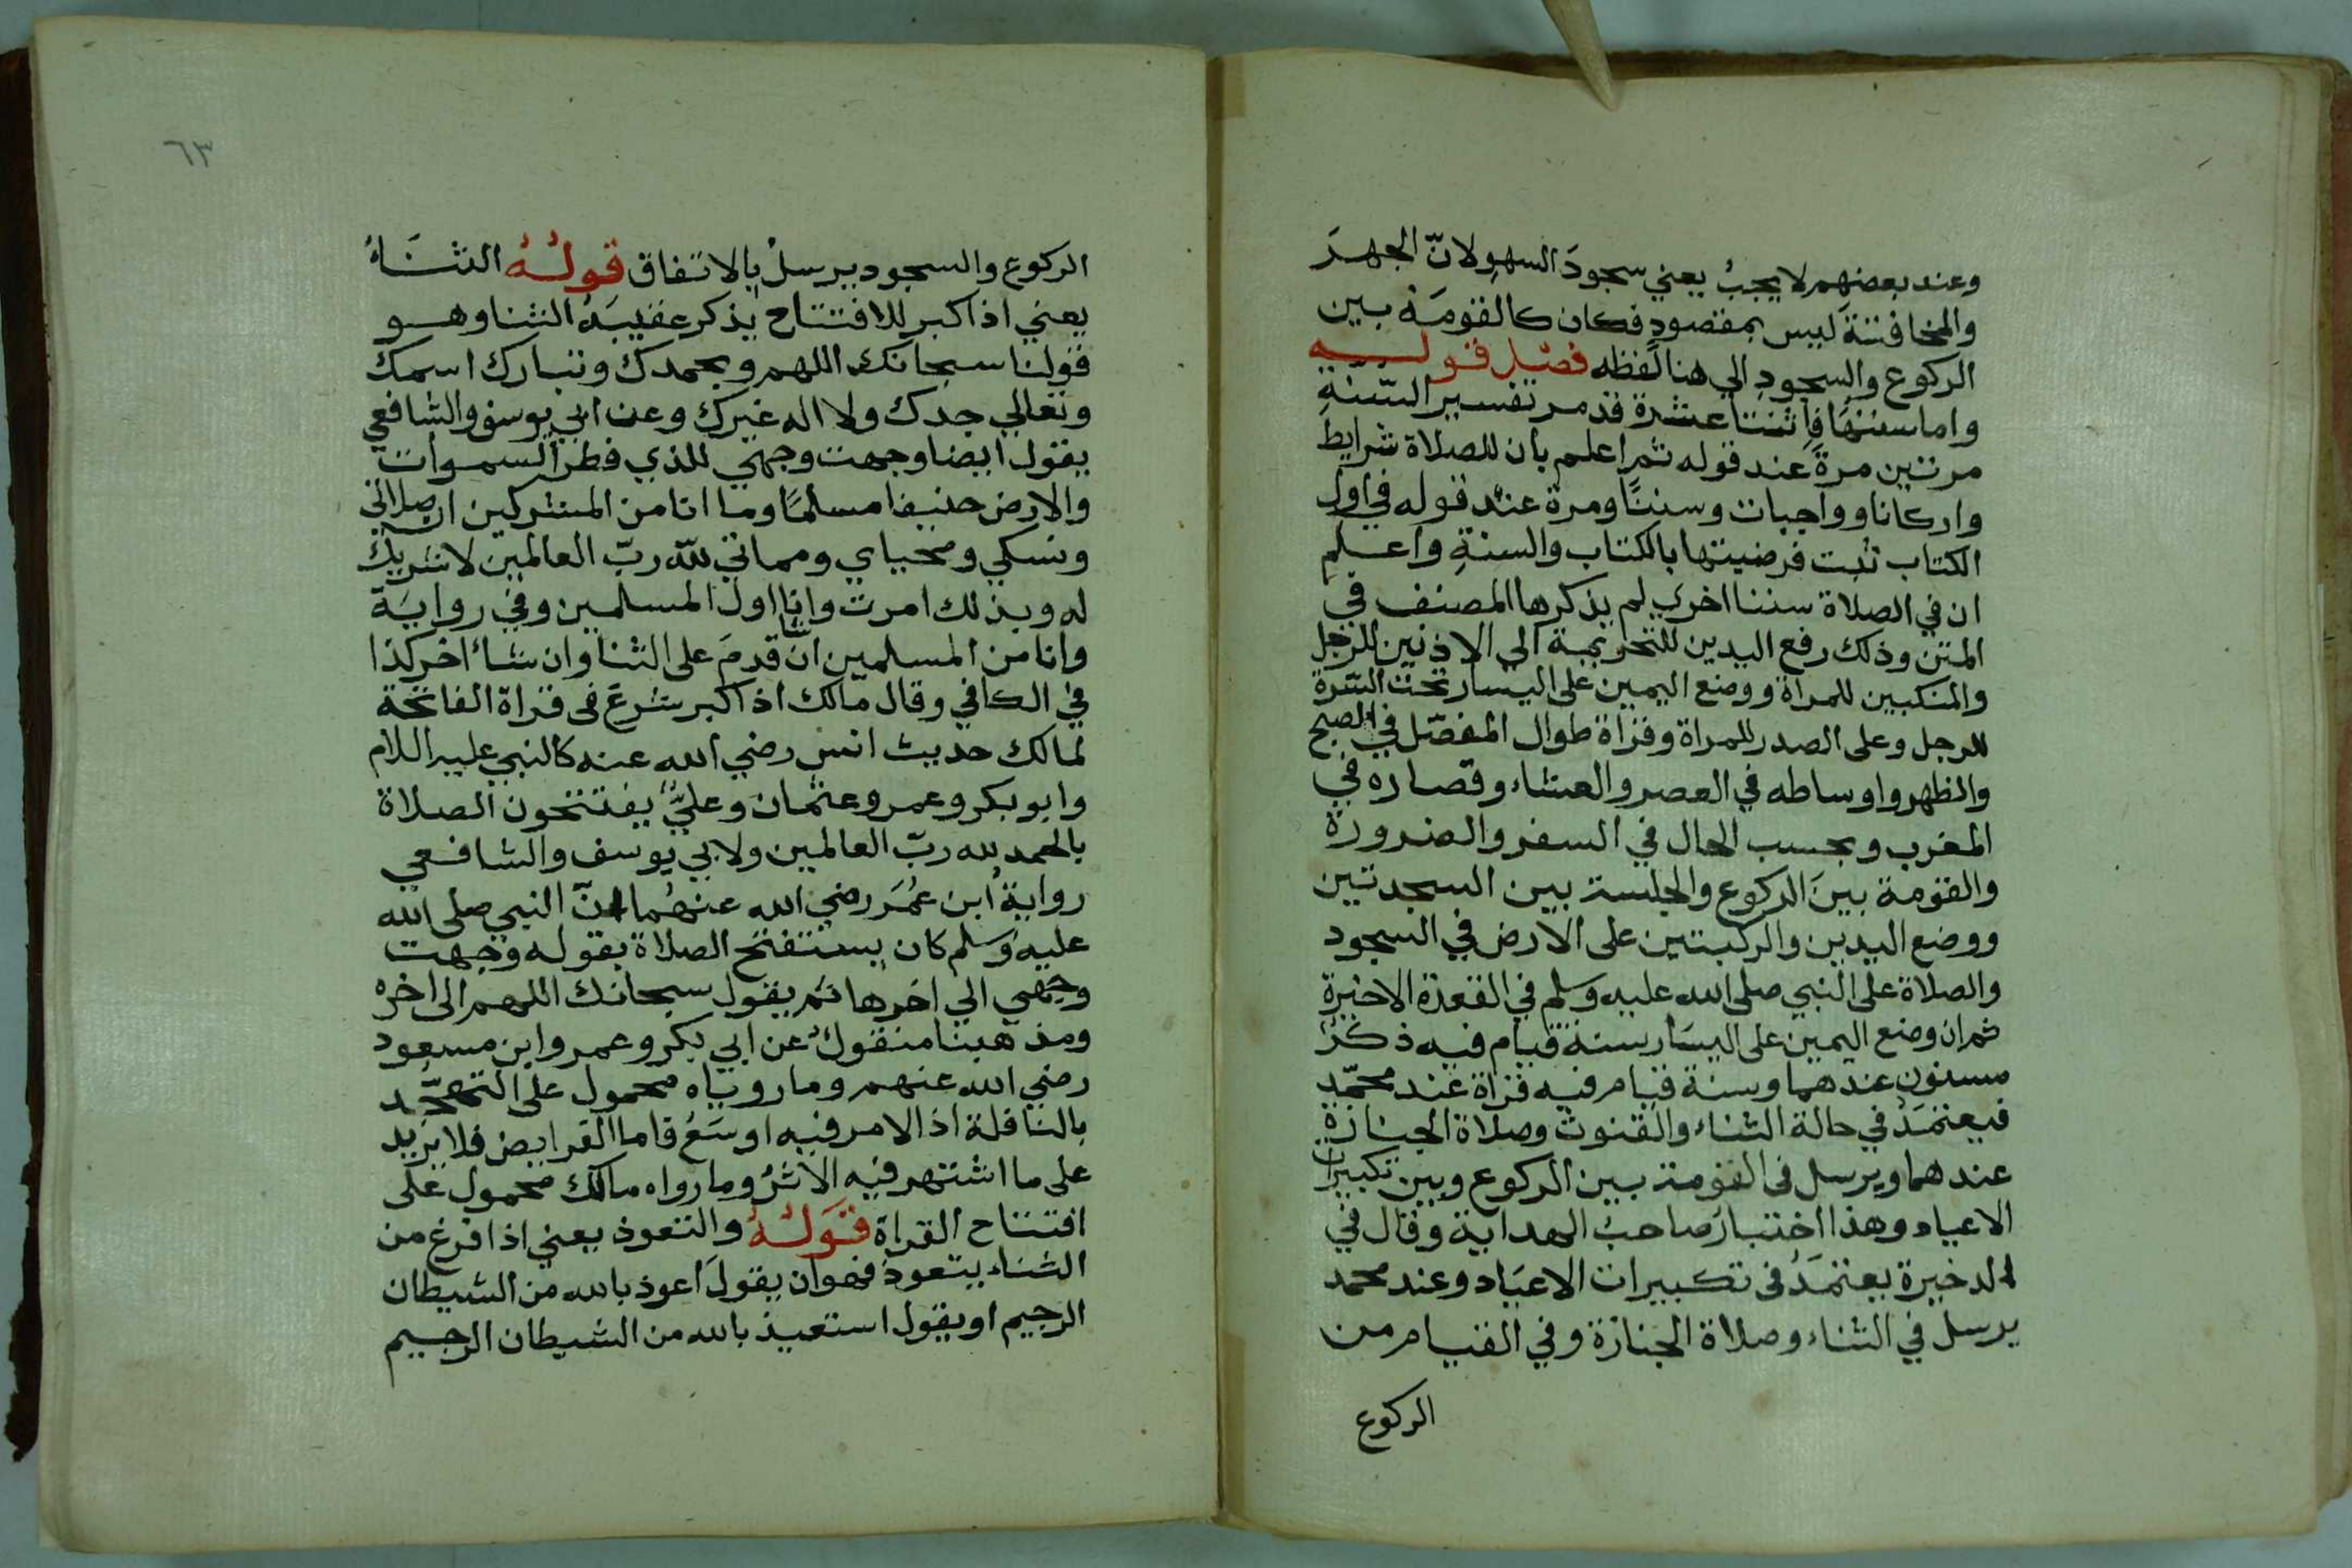 وعند بعضهم لا يجبُ يعني سجودَ السهوِ لانّ الجهرَ
والمخافتةَ ليس بمقصودٍ فكان كالقومَة بين
الركوع والسجودِ الي هنا لفظه فصل قولـــه
واما سننهَا فاثنتا عشرة قد مر تفسير السّنةِ
مرتين مرةً عند قوله ثم اعلم بان للصلاة شرايط
واركانا وواجبات وسننًا ومرة عند قوله في اول
الكتاب ثبت فرضيتها بالكتاب والسنةِ واعلم
ان في الصلاة سننا اخري لم يذكرها المصنف في
المتن وذلك رفع اليدين للتحريمة الي الاذنين للرجل
والمنكبين للمراة ووضع اليمين على اليسار تحت السّرة
للرجل وعلى الصدر للمراة وقراة طوال المفصّل في الصبح
والظهر واوساطه في العصر والعشاء وقصاره في
المغرب وبحسب الحال في السفر والضرورة
والقومة بينَ الركوع والجلسة بين السجدتين
ووضع اليدين والركبتين على الارض في السجود
والصلاة على النبي صلى الله عليه وسلم في القعدة الاخيرة
ثم ان وضع اليمين على اليسَار سنة قيام فيه ذكرٌ
مسنون عندهما وسنة قيام فيه قراة عند محمّد
فيعتمَدُ في حالة الثناء والقنوت وصلاة الجنازة
عندهما ويرسل في القومة بين الركوع وبين تكبيرات
الاعياد وهذا اختيارُ صاحبُ الهداية وقال في
الدخيرة يعتمَدُ في تكبيرات الاعيَاد وعند محمد
يرسل في الثناء وصلاة الجنازة وفي القيام من
الركوع
٦٣
الركوع والسجود يرسلُ بالاتفاق قولُهُ الثنَاءُ
يعني اذا كبر للافتتاح يذكر عقيبَهُ الثنا وهو
قولنا سبحانك اللهم وبحمدك وتبارك اسمك
وتعالي جدك ولا اله غيرك وعن ابي يوسف والشافعي
يقول ايضا وجهت وجهي للذي فطر السموات
والارض حنيفا مسلمًا وما انا من المشركين ان صلاتي
ونسكي ومحياي ومماتي للّه ربّ العالمين لا شريك
له وبذلك امرت وانا اول المسلمين وفي روايَة
وانا من المسلمين ان قدمَ على الثنا وان شاءُ اخر كذا
في الكافي وقال مالك اذا كبر شرعَ في قراة الفاتحة
لمالك حديث انس رضي الله عنه كا النبي عليه اللام
وابو بكر وعمر وعثمان وعليٌّ يفتتحون الصلاة
بالحمد لله ربّ العالمين ولابي يوسف والشافعي
روايةُ ابن عُمَر رضي الله عنهُما انّ النبي صلى الله
عليه وسلم كان يستفتح الصلاة بقوله وجهت
وجهي الي اخرها ثم يقول سبحانك اللهم الى اخره
ومذهبنا منقولٌ عن ابي بكر وعمر وابن مسعود
رضي الله عنهم وما روياه محمول على التهجّد
بالنافلة اذ الامر فيه اوسَعُ فاما الفرايض فلا يزيد
على ما اشتهر فيه الاثرُ وما رواه مالك محمول على
افتتاح القراة قوَلُهُ والتعوذ يعني اذا فرغ من
الثناء يتعوذ فهو ان يقولَ اعوذ بالله من الشيطان
الرجيم او يقول استعيذ بالله من الشيطان الرجيم